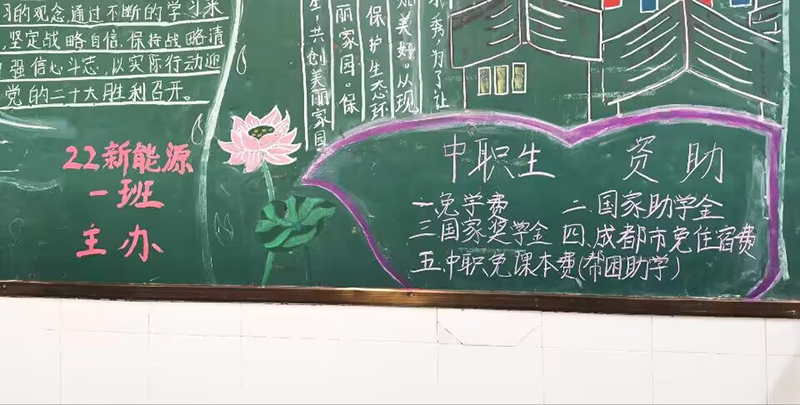 习的观念,通过不断的学习来
坚定战略自信,保持战略清
强信心斗志,以实际行动迎
党的二十大胜利召开。
22新能源
一班
主办
生,共创美丽家园
丽家园。保
保护生态环
美好。从现
秀,为了让
中职生 资助
一.免学费 二.国家助学金
三国家奖学金 四.成都市免住宿费
五.中职免课本费(帮困助学)